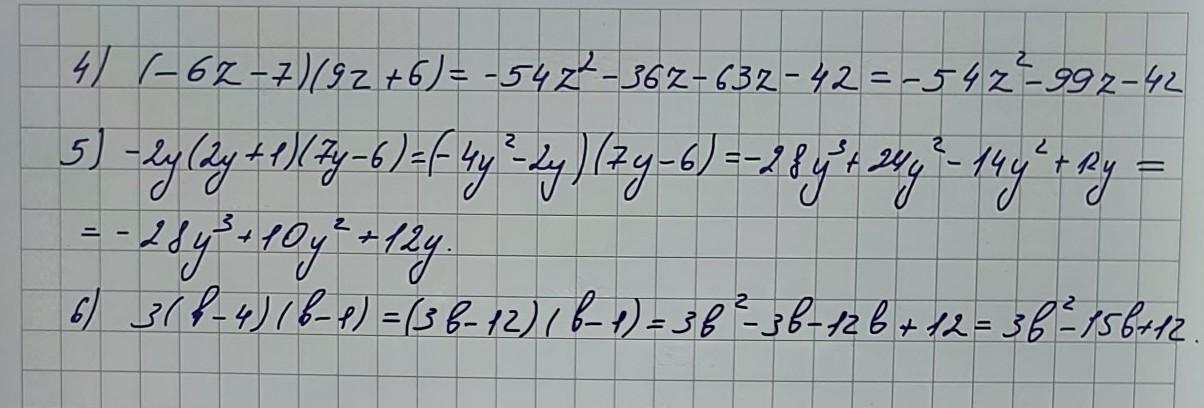 4) (-6z-7)(9z+6)= -54z²-36z-63z-42=-54z²-99z-42
5) -2y(2y+1)(7y-6)=(-4y²-2y)(7y-6)=-28y³+24y²-14y²+12y=
=-28y³+10y²+12y.
6) 3(b-4)(b-1)=(3b-12)(b-1)=3b²-3b-12b+12=3b²-15b+12.